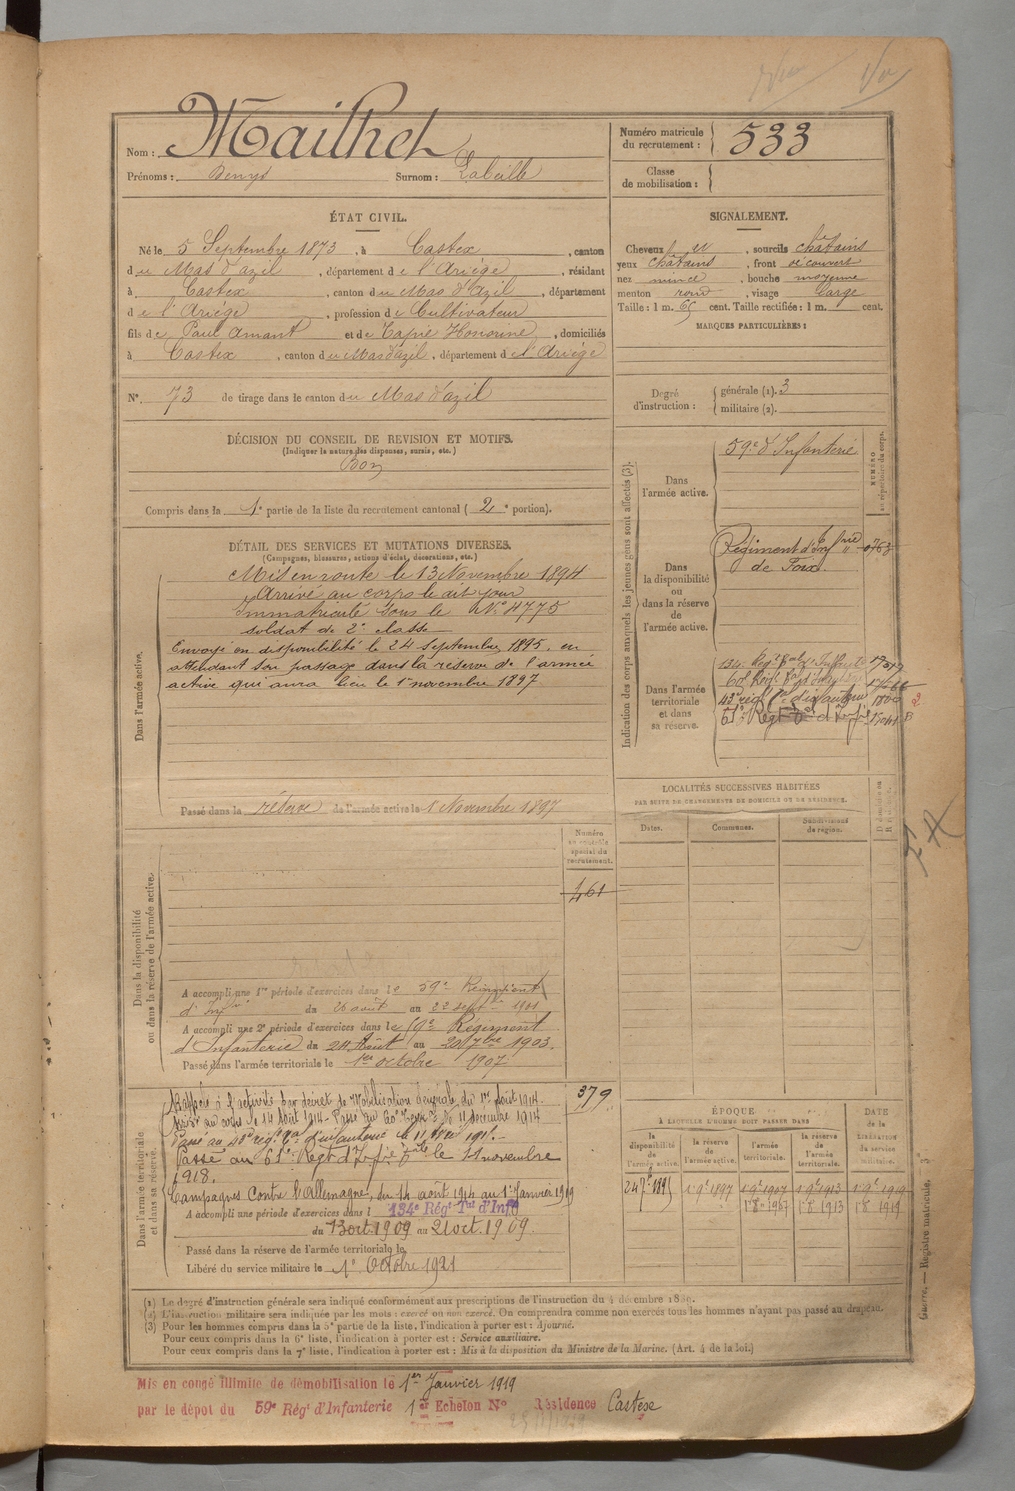 Nom : Mailhet
Prénoms : Denys Surnom : Labeille
Numéro matricule du recrutement : 533
Classe de mobilisation :
ÉTAT CIVIL.
Né le 5 Septembre 1873, à Castex, canton
du Mas d'azil, département de l'Ariège, résidant
à Castex, canton du Mas d'Azil, département
de l'Ariège, profession de Cultivateur
fils de Paul Amant et de Capié Honorine, domiciliés
à Castex, canton du Mas d'azil, département de l'Ariège
N° 73 de tirage dans le canton du Mas d'azil
SIGNALEMENT.
Cheveux et, sourcils châtains
yeux châtains, front découvert
nez mince, bouche moyenne
menton rond, visage large
Taille : 1 m. 65 cent. Taille rectifiée : 1 m. cent.
MARQUES PARTICULIÈRES :
Degré d'instruction : générale (1). 3
militaire (2).
DÉCISION DU CONSEIL DE REVISION ET MOTIFS.
(Indiquer la nature des dispenses, sursis, etc.)
Bon
Compris dans la 1e partie de la liste du recrutement cantonal (2e portion).
DÉTAIL DES SERVICES ET MUTATIONS DIVERSES.
(Campagnes, blessures, actions d'éclat, décorations, etc.)
Dans l'armée active.
Mis en route le 13 Novembre 1894
Arrivé au corps le dit jour
Immatriculé sous le N° 4775
soldat de 2e classe
Envoyé en disponibilité le 24 septembre 1895, en
attendant son passage dans la réserve de l'armée
active qui aura lieu le 1er novembre 1897
Passé dans la réserve de l'armée active le 1 Novembre 1897
Indication des corps auxquels les jeunes gens sont affectés (3).
NUMÉRO au répertoire du corps.
Dans l'armée active.
59e d'Infanterie
Dans la disponibilité ou dans la réserve de l'armée active.
Régiment d'Infrie 0763
de Foix.
Dans l'armée territoriale et dans sa réserve.
134e Régt
LOCALITÉS SUCCESSIVES HABITÉES
PAR SUITE DE CHANGEMENTS DE DOMICILE OU DE RÉSIDENCE.
Dates. Communes. Subdivisions de région.
Dans la disponibilité ou dans la réserve de l'armée active.
Numéro au contrôle spécial du recrutement.
461
A accompli une 1re période d'exercices dans le 59e Régiment
d'Infrie du 26 août au 22 septbre 1901
A accompli une 2e période d'exercices dans le 59e Régiment
d'Infanterie du 24 Août au 20 7bre 1903.
Passé dans l'armée territoriale le 1er octobre 1907
Dans l'armée territoriale et dans sa réserve.
379
Rappelé à l'activité par décret de Mobilisation Générale du 1er août 1914.
Arrivé au corps le 14 Août 1914. Passé au 60e le 11 décembre 1914
Passé au 43e régt d'infanterie le 11
Passé au 61e Régt d'Infie le 11 novembre
1918.
Campagnes Contre l'Allemagne, du 14 août 1914 au 1er Janvier 1919
A accompli une période d'exercices dans l 134e Régt Tal d'Infie
du 13 oct 1909 au 21 oct. 1909
Passé dans la réserve de l'armée territoriale le
Libéré du service militaire le 1er Octobre 1921
ÉPOQUE
À LAQUELLE L'HOMME DOIT PASSER DANS
DATE DE LA LIBÉRATION du service militaire.
la disponibilité de l'armée active. la réserve de l'armée active. l'armée territoriale. la réserve de l'armée territoriale.
24 7bre 1895 1 9 1897 1 9 1907 1 9 1913 1 9 1919
1 8 1907 1 8 1913 1 8 1919
(1) Le degré d'instruction générale sera indiqué conformément aux prescriptions de l'instruction du 4 décembre 1889.
(2) L'instruction militaire sera indiquée par les mots : exercé ou non exercé. On comprendra comme non exercés tous les hommes n'ayant pas passé au drapeau.
(3) Pour les hommes compris dans la 5e partie de la liste, l'indication à porter est : Ajourné.
Pour ceux compris dans la 6e liste, l'indication à porter est : Service auxiliaire.
Pour ceux compris dans la 7e liste, l'indication à porter est : Mis à la disposition du Ministre de la Marine. (Art. 4 de la loi.)
Guerre. — Registre matricule. 3°
Mis en congé illimité de démobilisation le 1er Janvier 1919
par le dépot du 59e Régt d'Infanterie 1er Echelon N° Résidence Castex